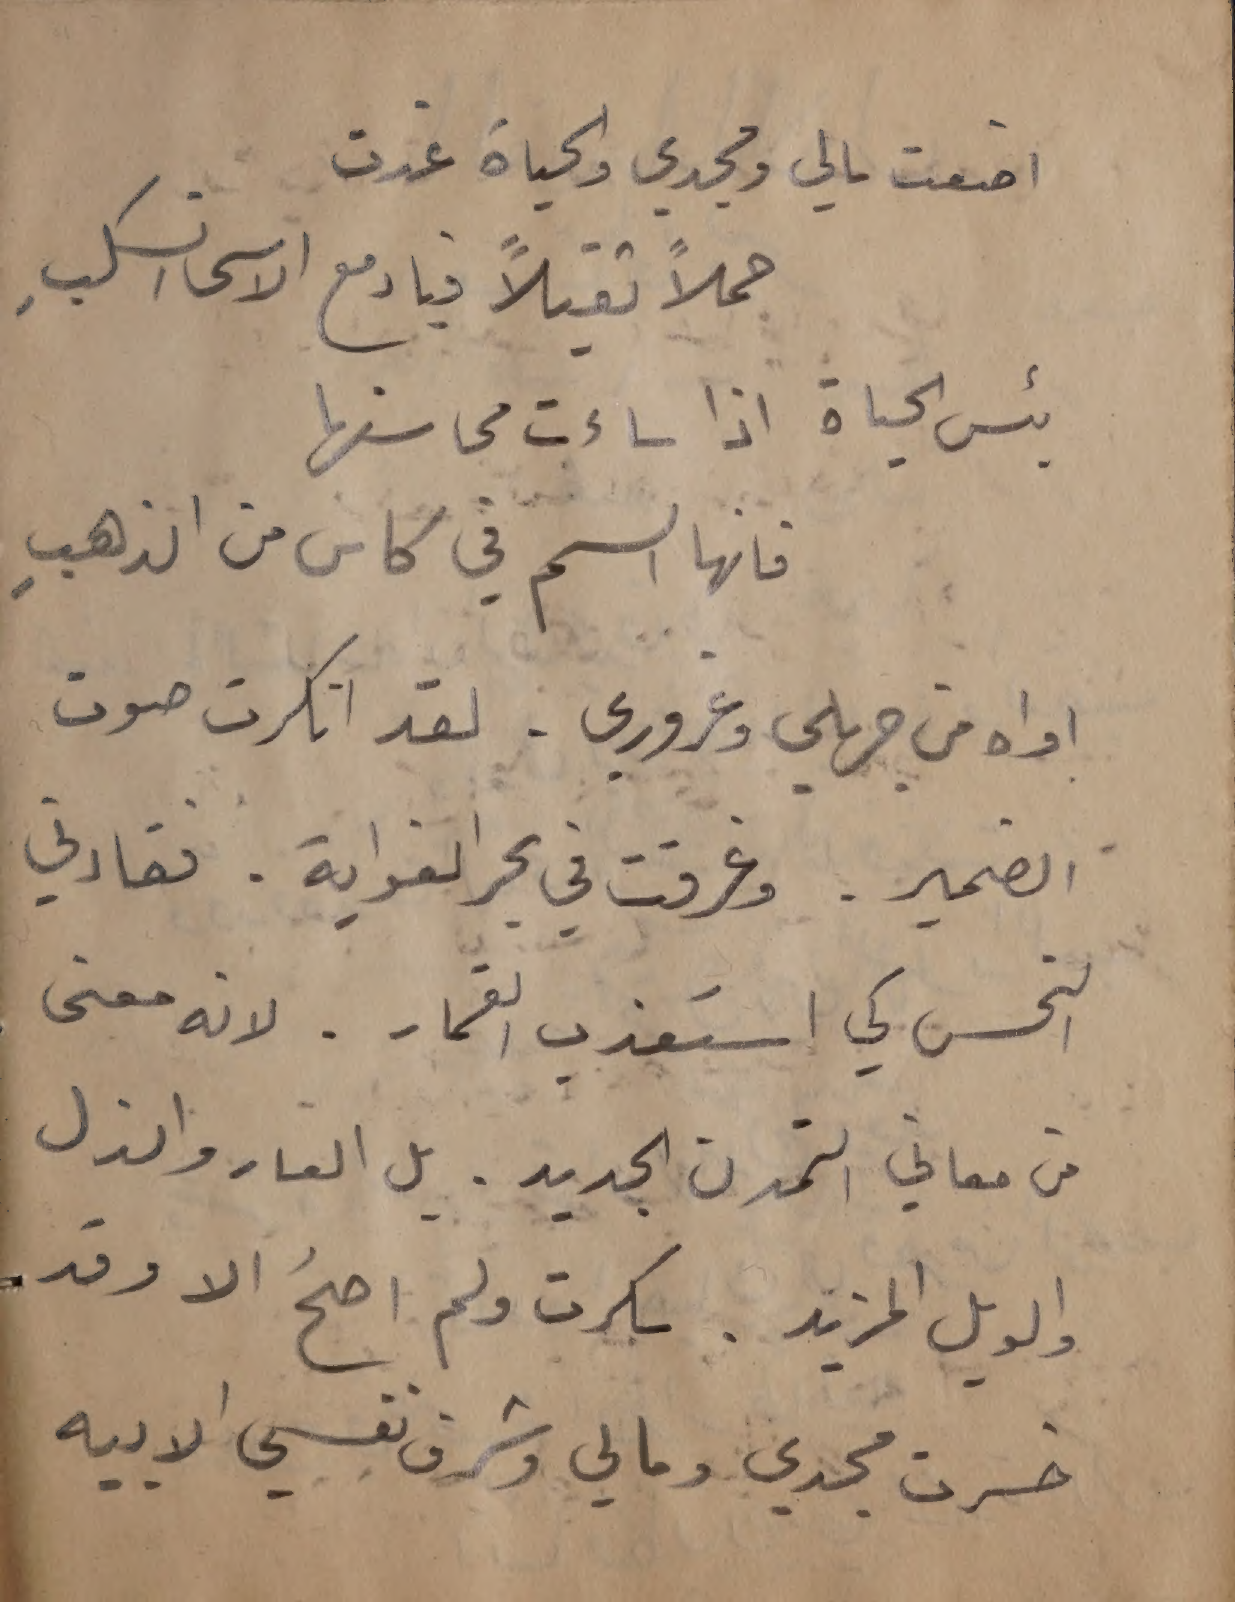 اضعت مالي ومجدي والحياة غدت
حملاً ثقيلاً فيا دمع الاسى انسكبِ
بئس الحياة اذا ساءت محاسنها
فانها السم في كاس من الذهبِ
اواه من جهلي وغروري . لقد انكرت صوت
الضمير . وغرقت في بحر الغواية . فقادني
النحس كي استعذب القمار . لانه معنى
من معاني التمدن الجديد . بل العار والذل
والويل المزيد . سكرت ولم اصحُ الا وقد
خسرت مجدي ومالي وشرف نفسي الابيه